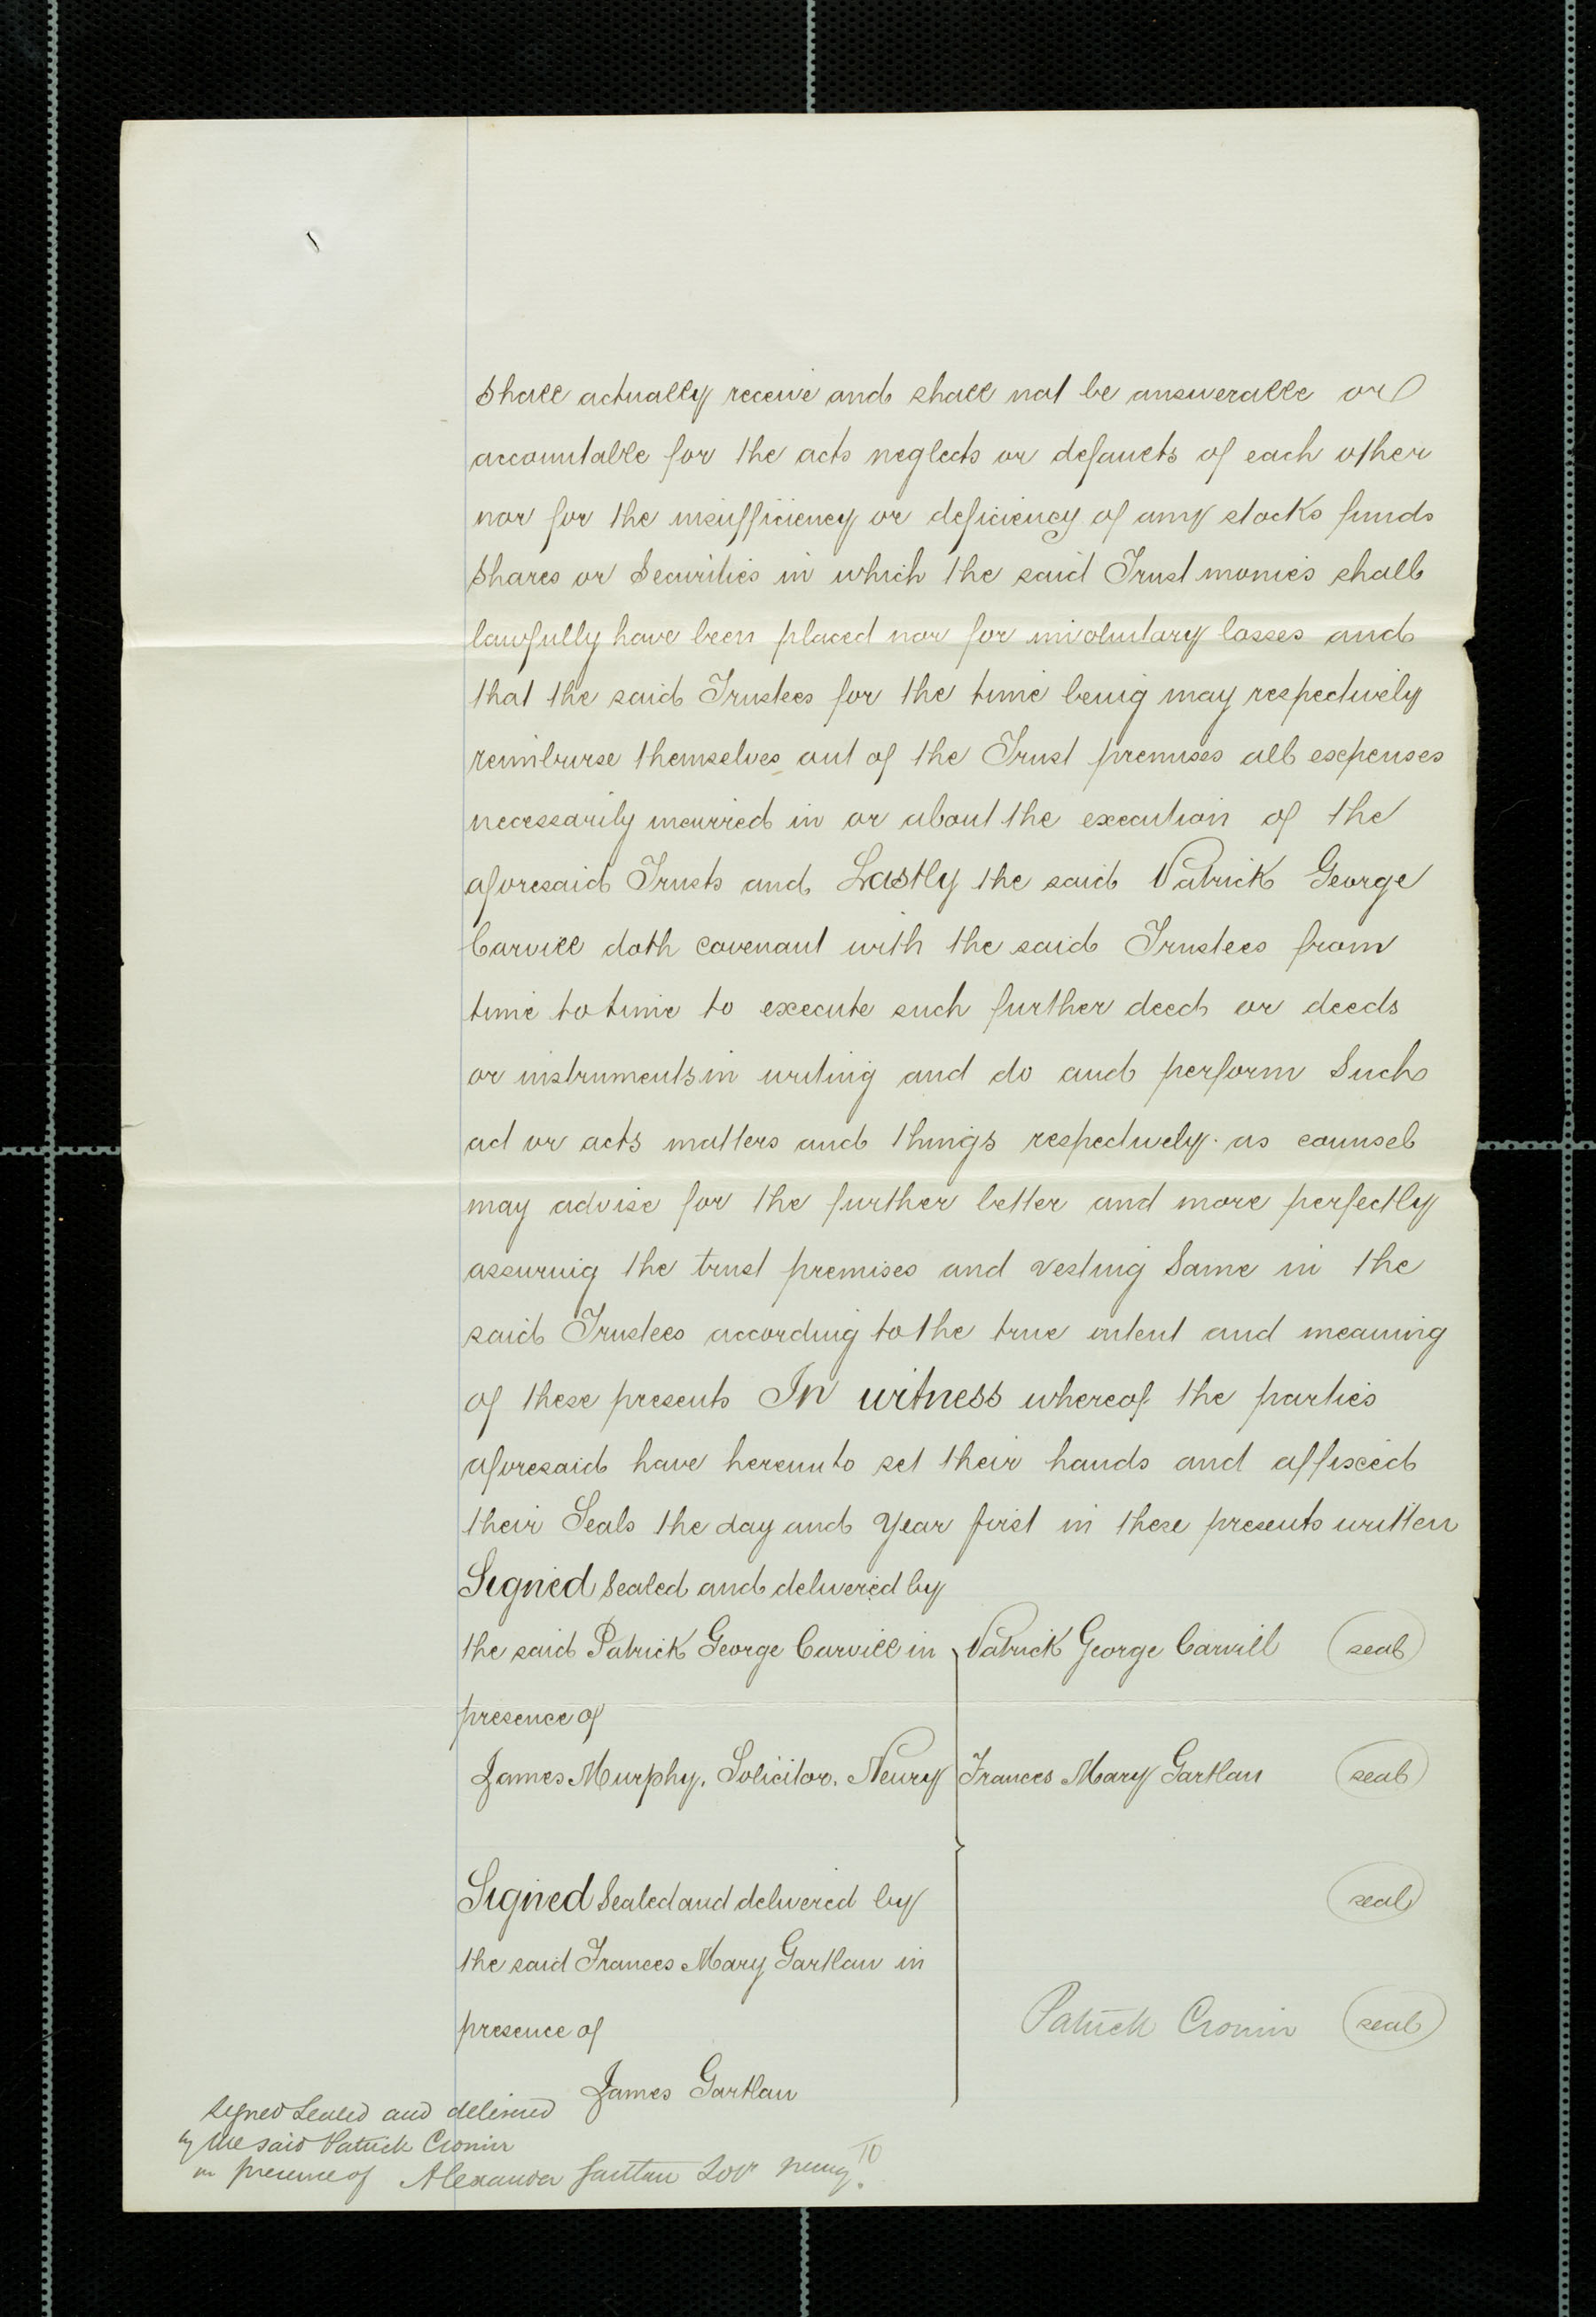 shall actually receive and shall not be answerable or
accountable for the acts neglects or defaults of each other
nor for the insufficiency or deficiency of any stocks funds
shares or Securities in which the said Trust monies shall
lawfully have been placed nor for involuntary losses and
that the said Trustees for the time being may respectively
reimburse themselves out of the Trust premises all expenses
necessarily incurred in or about the execution of the
aforesaid Trusts and Lastly the said Patrick George
Carvill doth covenant with the said Trustees from
time to time to execute such further deed or deeds
or instruments in writing and do and perform Such
act or acts matters and things respectively as counsel
may advise for the further better and more perfectly
assuring the trust premises and vesting Same in the
said Trustees according to the true intent and meaning
of these presents In witness whereof the parties
aforesaid have hereunto set their hands and affixed
their Seals the day and Year first in these presents written
Signed Sealed and delivered by
the said Patrick George Carvill in Patrick George Carvill seal
presence of
James Murphy. Solicitor. Newry Frances Mary Gartlan seal
Signed Sealed and delivered by seal
the said Frances Mary Gartlan in
presence of Patrick Cronin seal
James Gartlan
Signed Sealed and delivered
by the said Patrick Cronin
in presence of Alexander Gartlan Solr Newry
10